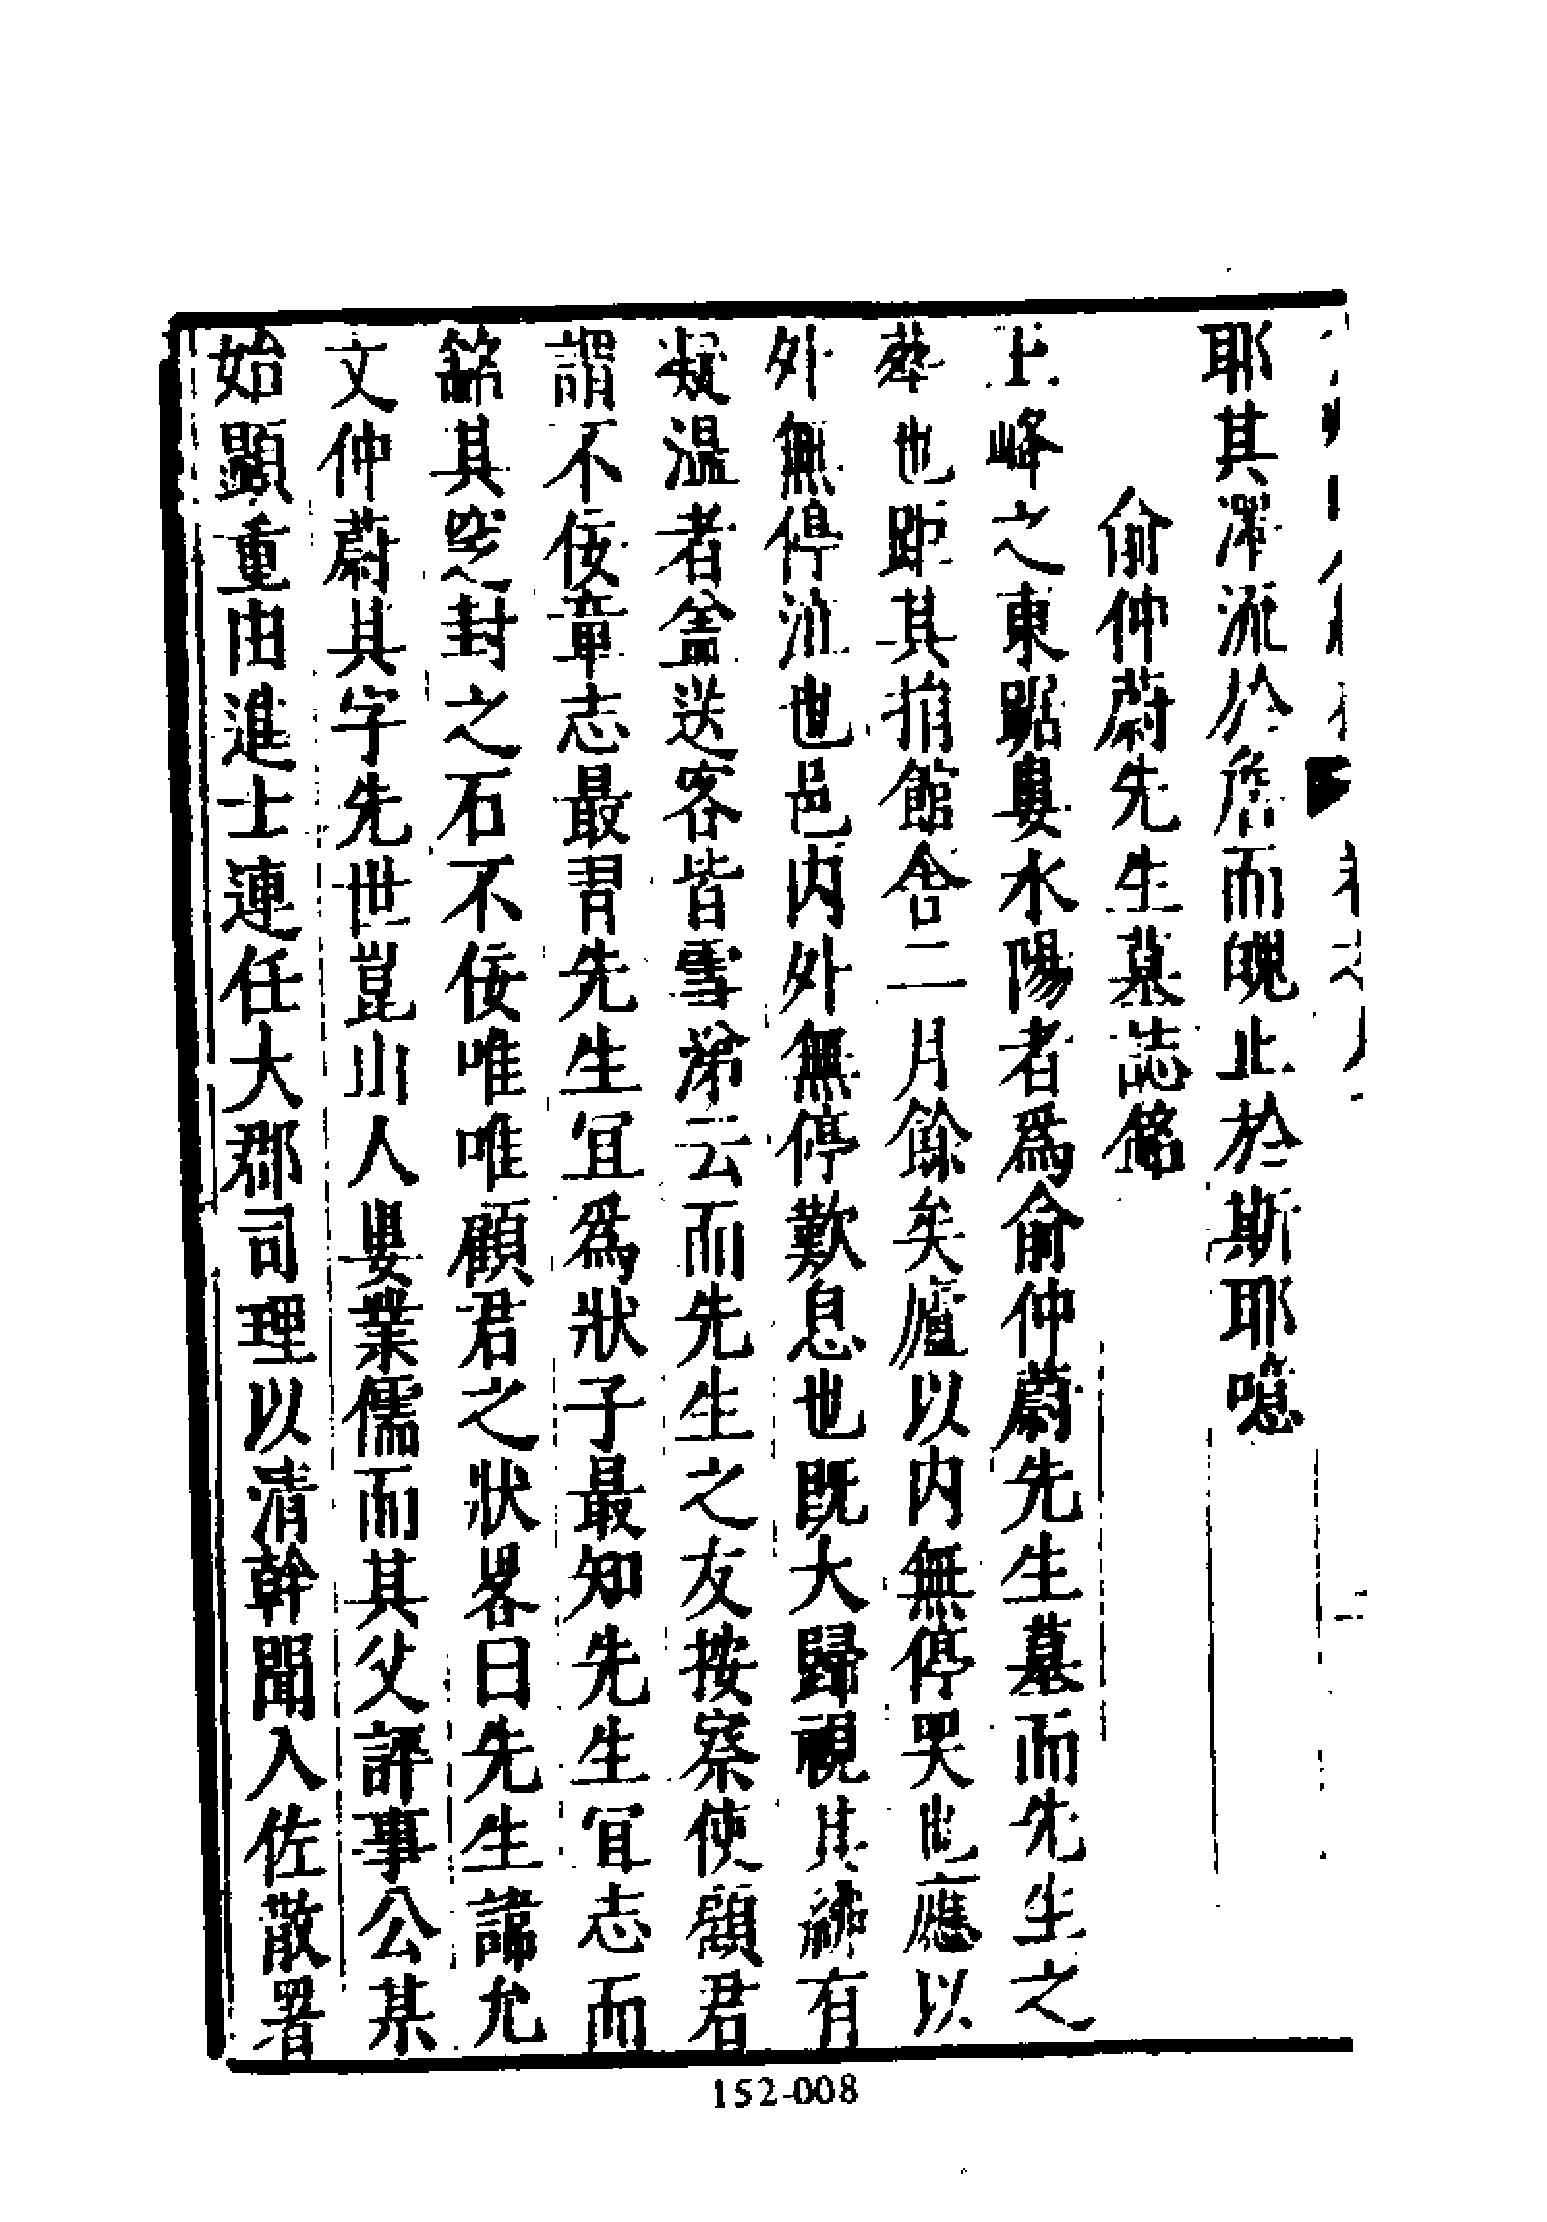 耶其澤流於詹而魄止於斯耶噫
俞仲蔚先生墓誌銘
上峰之東踞婁水陽者爲俞仲蔚先生墓而先生之
葬也距其捐館舍二月餘矣廬以内無停哭也應以
外無停泣也邑内外無停歎息也既大歸視其有
凝温者盖送客皆雪涕云而先生之友按察使顧君
謂不佞章志最習先生宜爲狀子最知先生宜志而
銘其窆封之石不佞唯唯顧君之狀畧曰先生諱允
文仲蔚其字先世崑山人婁業儒而其父評事公某
始顯重由進士連任大郡司理以清幹聞入佐散署
152-008